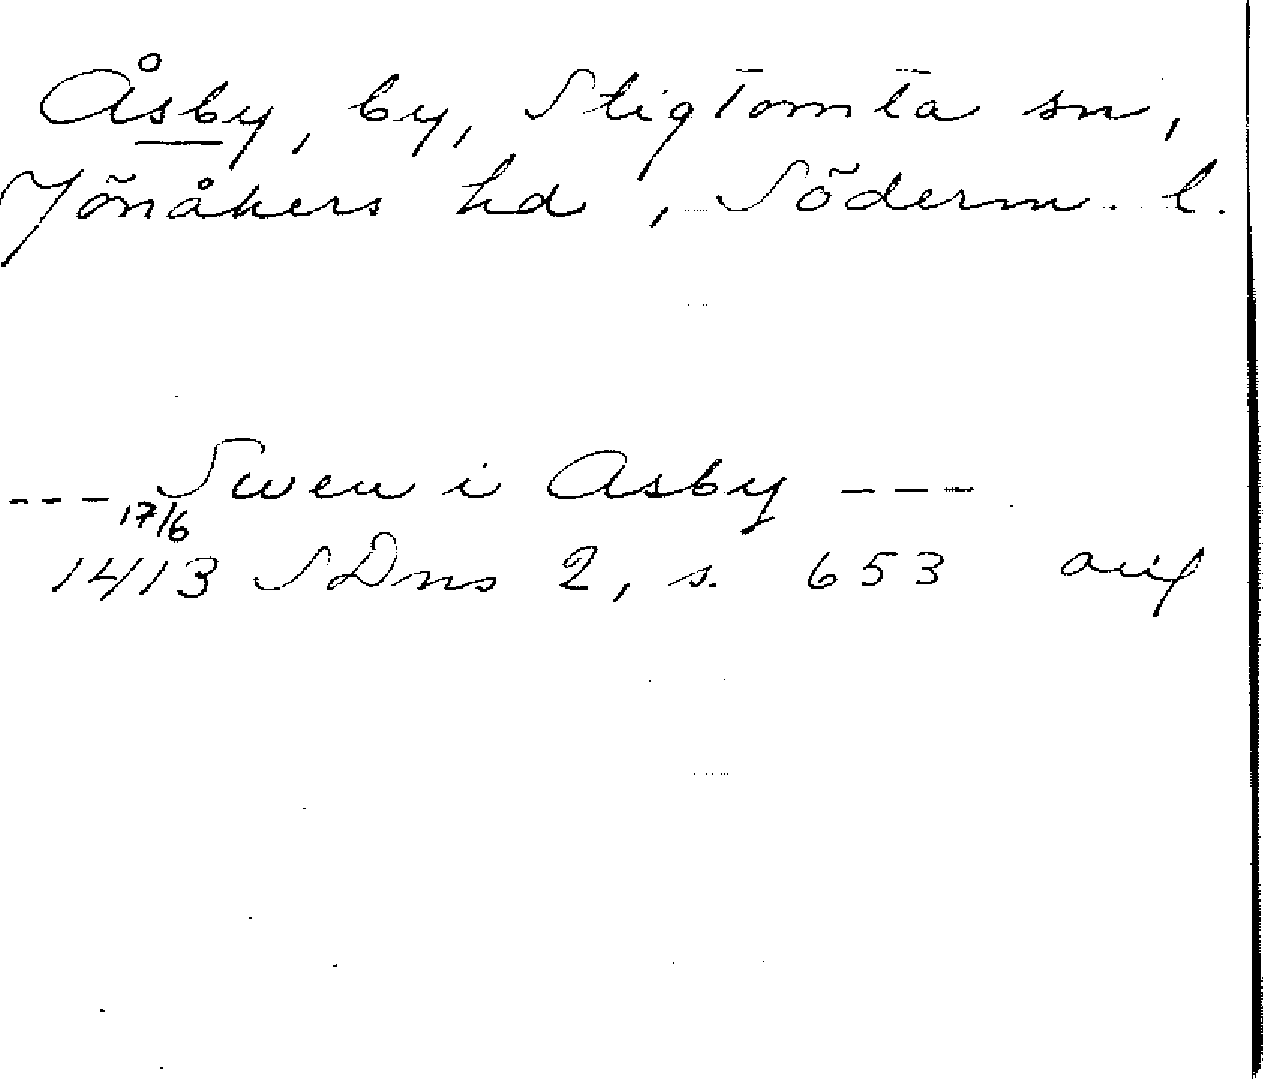 Åsby, by, Stigtomta sn,
Jönåkers hd, Söderm. l.
--- Swen i Asby ---
17/6
1413 SDns 2, s. 653 avs